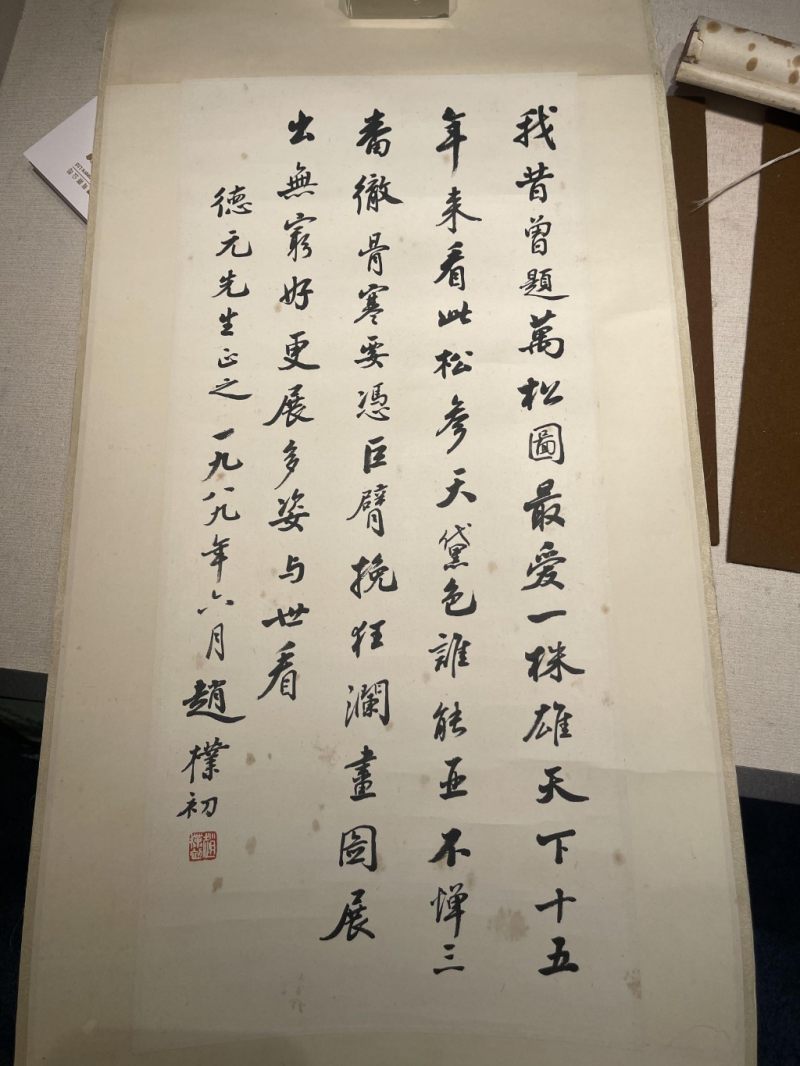 我昔曾題萬松圖最愛一株雄天下十五
年來看此松參天黛色誰能亞不憚三
番徹骨寒要憑巨臂挽狂瀾畫圖展
出無窮好更展多姿与世看
德元先生正之 一九八九年六月 趙樸初